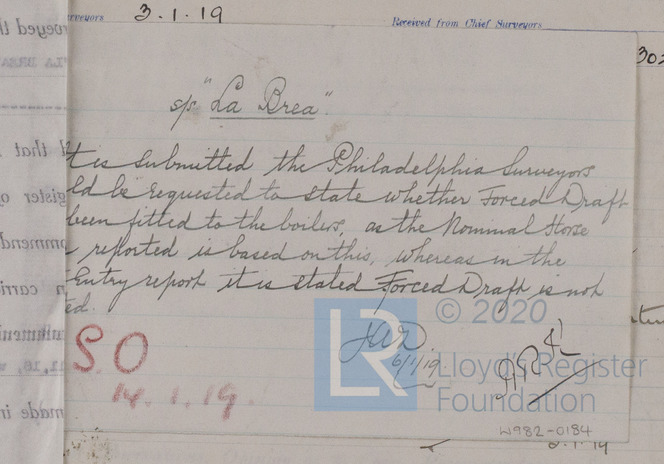 rveyors 3.1.19 Received from Chief Surveyors
302
s/s "La Brea".
t is submitted the Philadelphia Surveyors
ld be requested to state whether Forced Draft
been fitted to the boilers, as the Nominal Horse
reported is based on this, whereas in the
Entry report it is stated Forced Draft is not
ed.
SO
14.1.19.
6/1/19
LR
© 2020
Lloyd's Register
Foundation
W982-0184